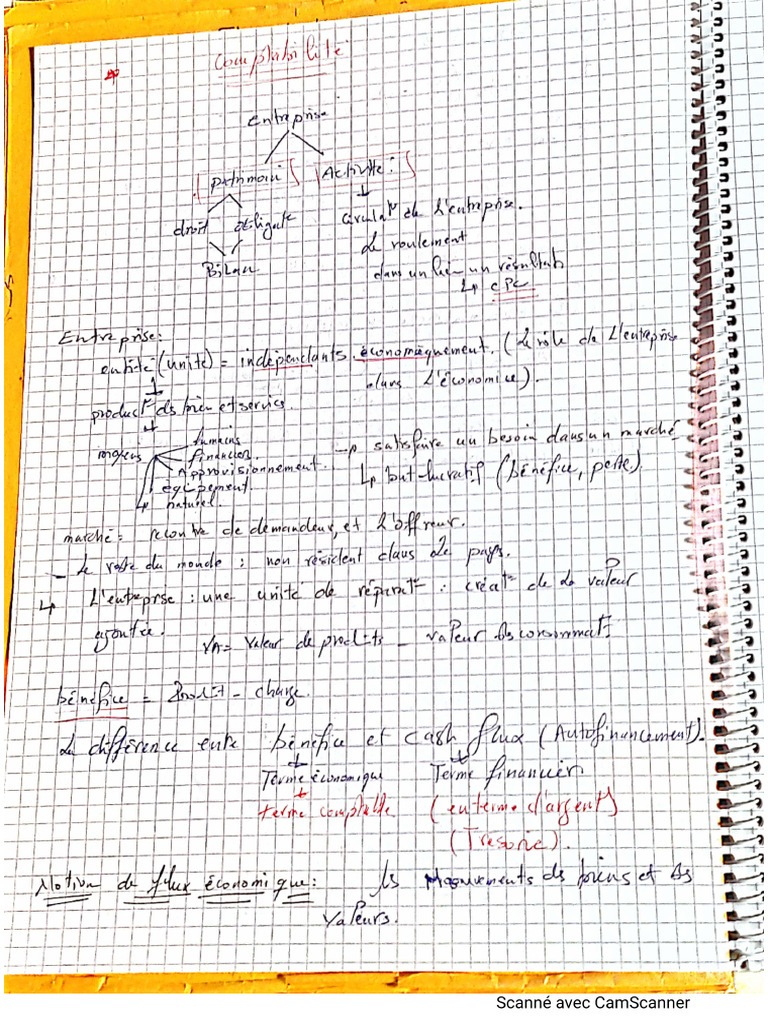 Comptabilité
entreprise
patrimoin Activité:
droit obligat° circulat° de l'entreprise.
le roulement
Bilan dans un lien un résultat
↳ CPC
Entreprise:
entité (unité) = indépendants économiquement. (Le rôle de l'entreprise
dans l'économie).
product° ds bien et servics.
moyens humains
financier.
Approvisionnement.
équipement
naturel.
→ satisfaire un besoin dans un marché
↳ but-lucratif (bénéfice, perte).
marché = recontre de demandeur, et l'offreur.
_ Le reste du monde : non résident dans le pays.
↳ L'entreprise : une unité de réparat° : créat° de la valeur
ajoutée. VA = valeur de produits - valeur ds consommat°
bénéfice = Produit - charge.
La différence ente bénéfice et cash flux (Autofinancement).
Terme économique Terme financier
terme comptable (en terme d'argent)
(Tresorie).
Notion de flux économique: ls Mouvements ds biens et ds
valeurs.
Scanné avec CamScanner